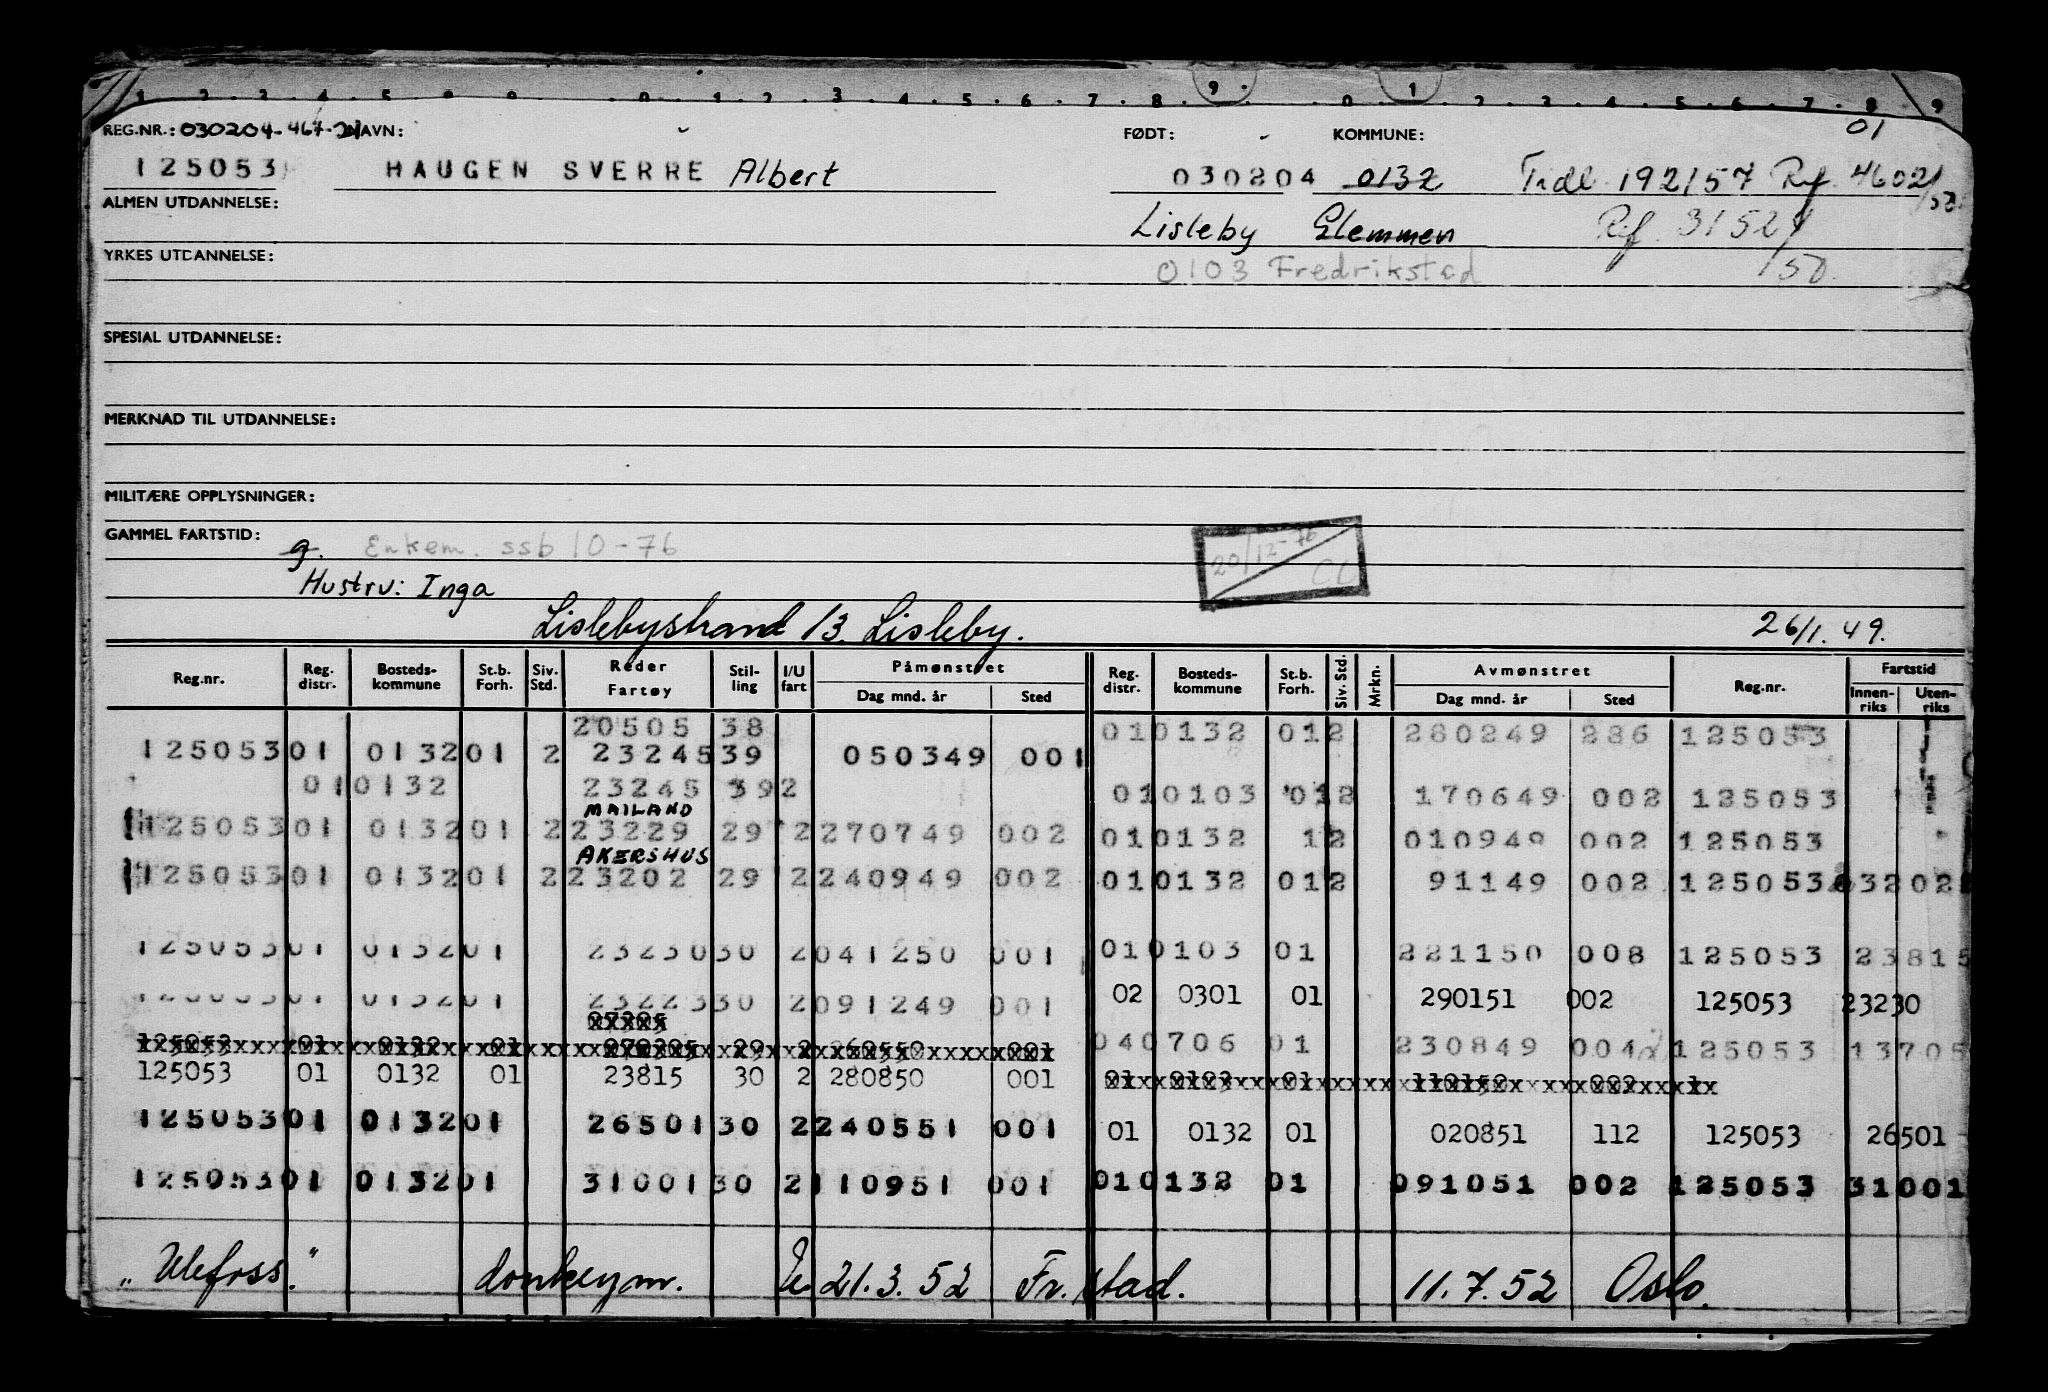 1 2 3 4 5 8 9 0 1 2 3 4 5 6 7 8 9 0 1 2 3 4 5 6 7 8 9
REG.NR.: 030204-467- NAVN: FØDT: KOMMUNE: 01
125053 HAUGEN SVERRE Albert 030204 0132 Tidl 192157 Rf. 4602/50
ALMEN UTDANNELSE: Lisleby Glemmen Rf. 31524/50
YRKES UTDANNELSE: 0103 Fredrikstad
SPESIAL UTDANNELSE:
MERKNAD TIL UTDANNELSE:
MILITÆRE OPPLYSNINGER:
GAMMEL FARTSTID: g. Enkem. ssb 10-76 20/12-76 CL
Hustru: Inga
Lislebystrand 13. Lisleby. 26/1.49.
Reg.nr. Reg. distr. Bosteds-kommune St.b. Forh. Siv. Std. Reder Fartøy Stil-ling I/U fart Påmønstret Dag mnd. år Sted Reg. distr. Bosteds-kommune St.b. Forh. Siv. Std. Mrkn. Avmønstret Dag mnd. år Sted Reg.nr. Fartstid Innen-riks Uten-riks
20505 38 01 0132 01 2 280249 286 125053
125053 01 0132 01 2 23245 39 050349 001
01 0132 23245 39 2 01 0103 01 2 170649 002 125053
MAILAND
125053 01 0132 01 2 23229 29 2 270749 002 01 0132 1 2 010949 002 125053
AKERSHUS
125053 01 0132 01 2 23202 29 2 240949 002 01 0132 01 2 91149 002 125053 3202
125053 01 0132 01 23230 30 2 041250 001 01 0103 01 221150 008 125053 23815
125053 01 0132 01 23223 30 2 091249 001 02 0301 01 290151 002 125053 23230
125053 01 0132 01 29 2 260550 001 04 0706 01 230849 004 125053 13705
125053 01 0132 01 23815 30 2 280850 001 01 0103 01 110152 002 1
125053 01 0132 01 26501 30 2 240551 001 01 0132 01 020851 112 125053 26501
125053 01 0132 01 31001 30 2 110951 001 01 0132 01 091051 002 125053 31001
"Ulefoss." donkeym. U. 21.3.52 Fr.stad. 11.7.52 Oslo.